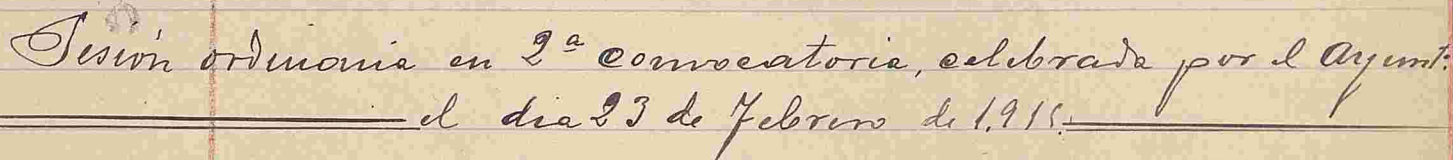 Sesión ordinaria en 2ª convocatoria, celebrada por el Ayunt.º
el dia 23 de Febrero de 1.915.